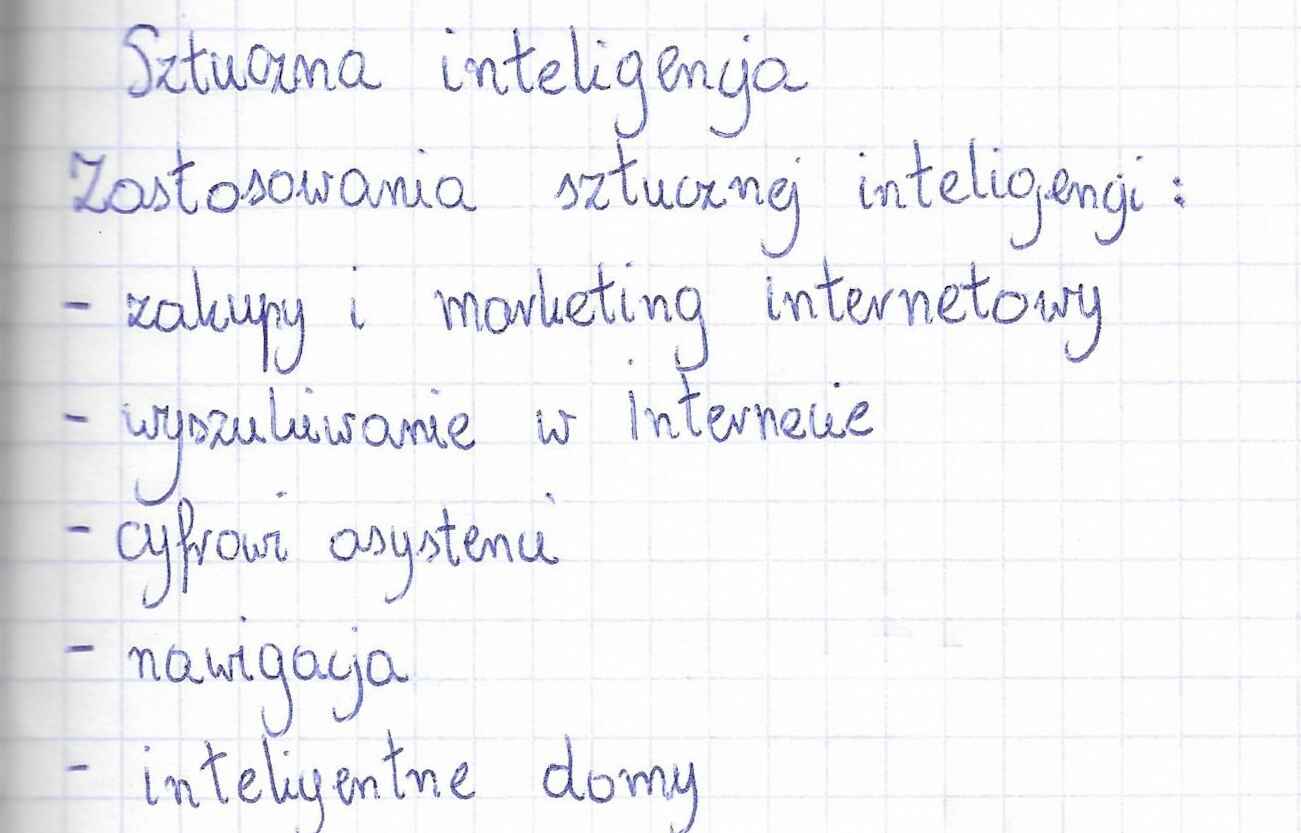 Sztuczna inteligencja
Zastosowania sztucznej inteligencji:
- zakupy i marketing internetowy
- wyszukiwanie w Internecie
- cyfrowi asystenci
- nawigacja
- inteligentne domy